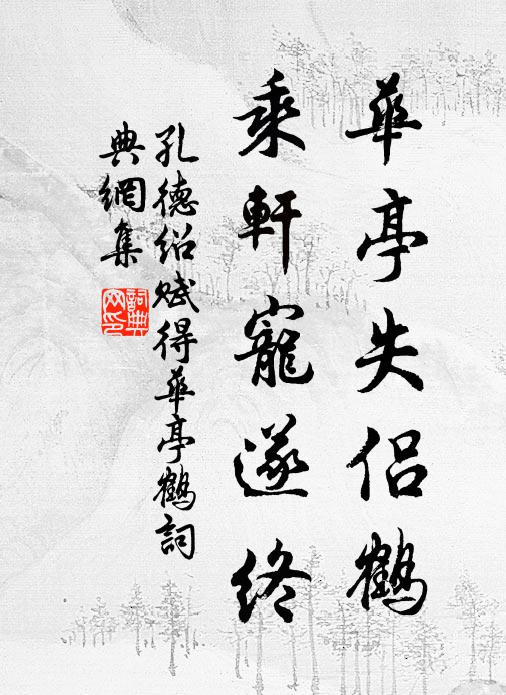 華亭失侶鶴
乘軒寵遂終
孔德紹賦得華亭鶴詞
典網集
詞典
网印